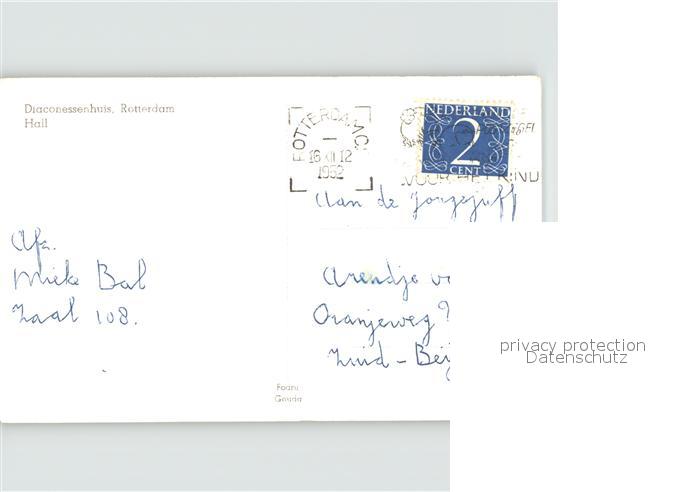 Diaconessenhuis, Rotterdam
Hall
ROTTERDAM C.
16 XII 12
1952
NEDERLAND
2
CENT
VOOR HET KIND
Aan de
Afz.
Mieke Bal
Zaal 108.
Arendje v
Oranjeweg
Zuid-Beij
Foam
Gouda
privacy protection
Datenschutz